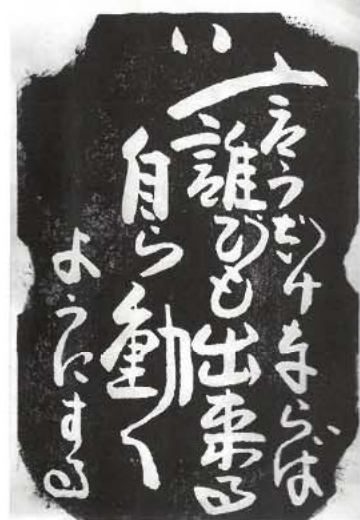 一、言うだけならば
誰でも出来る
自ら動く
ようにする